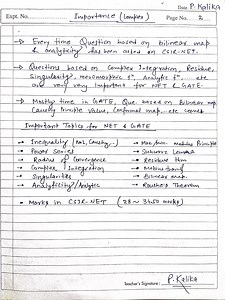 Date P. Kalika
Expt. No. Importance (Complex) Page No. 2
→ Every time Question based on bilinear map
& analyticity has been asked on CSIR-NET.
→ Questions based on Complex Integration, Residue,
Singularity, meromorphic fⁿ, Analytic fⁿ... etc
are very very important for NET & GATE.
→ Mostly time in GATE, Que. based on Bilinear map
Cauchy Principle Value, Conformal map, etc comes
Important Topics for NET & GATE
• Inequality (ML, Cauchy... • Max/min Modulus Principle
• Power Series • Schwarz Lemma
• Radius of Convergence • Residue thm
• Complex Integration • Mobius transf
• Singularities • Bilinear map.
• Analyticity/Analytic • Rouche's Theorem
• Marks in CSIR-NET (28 ~ Marks)
P. Kalika
Teacher's Signature :